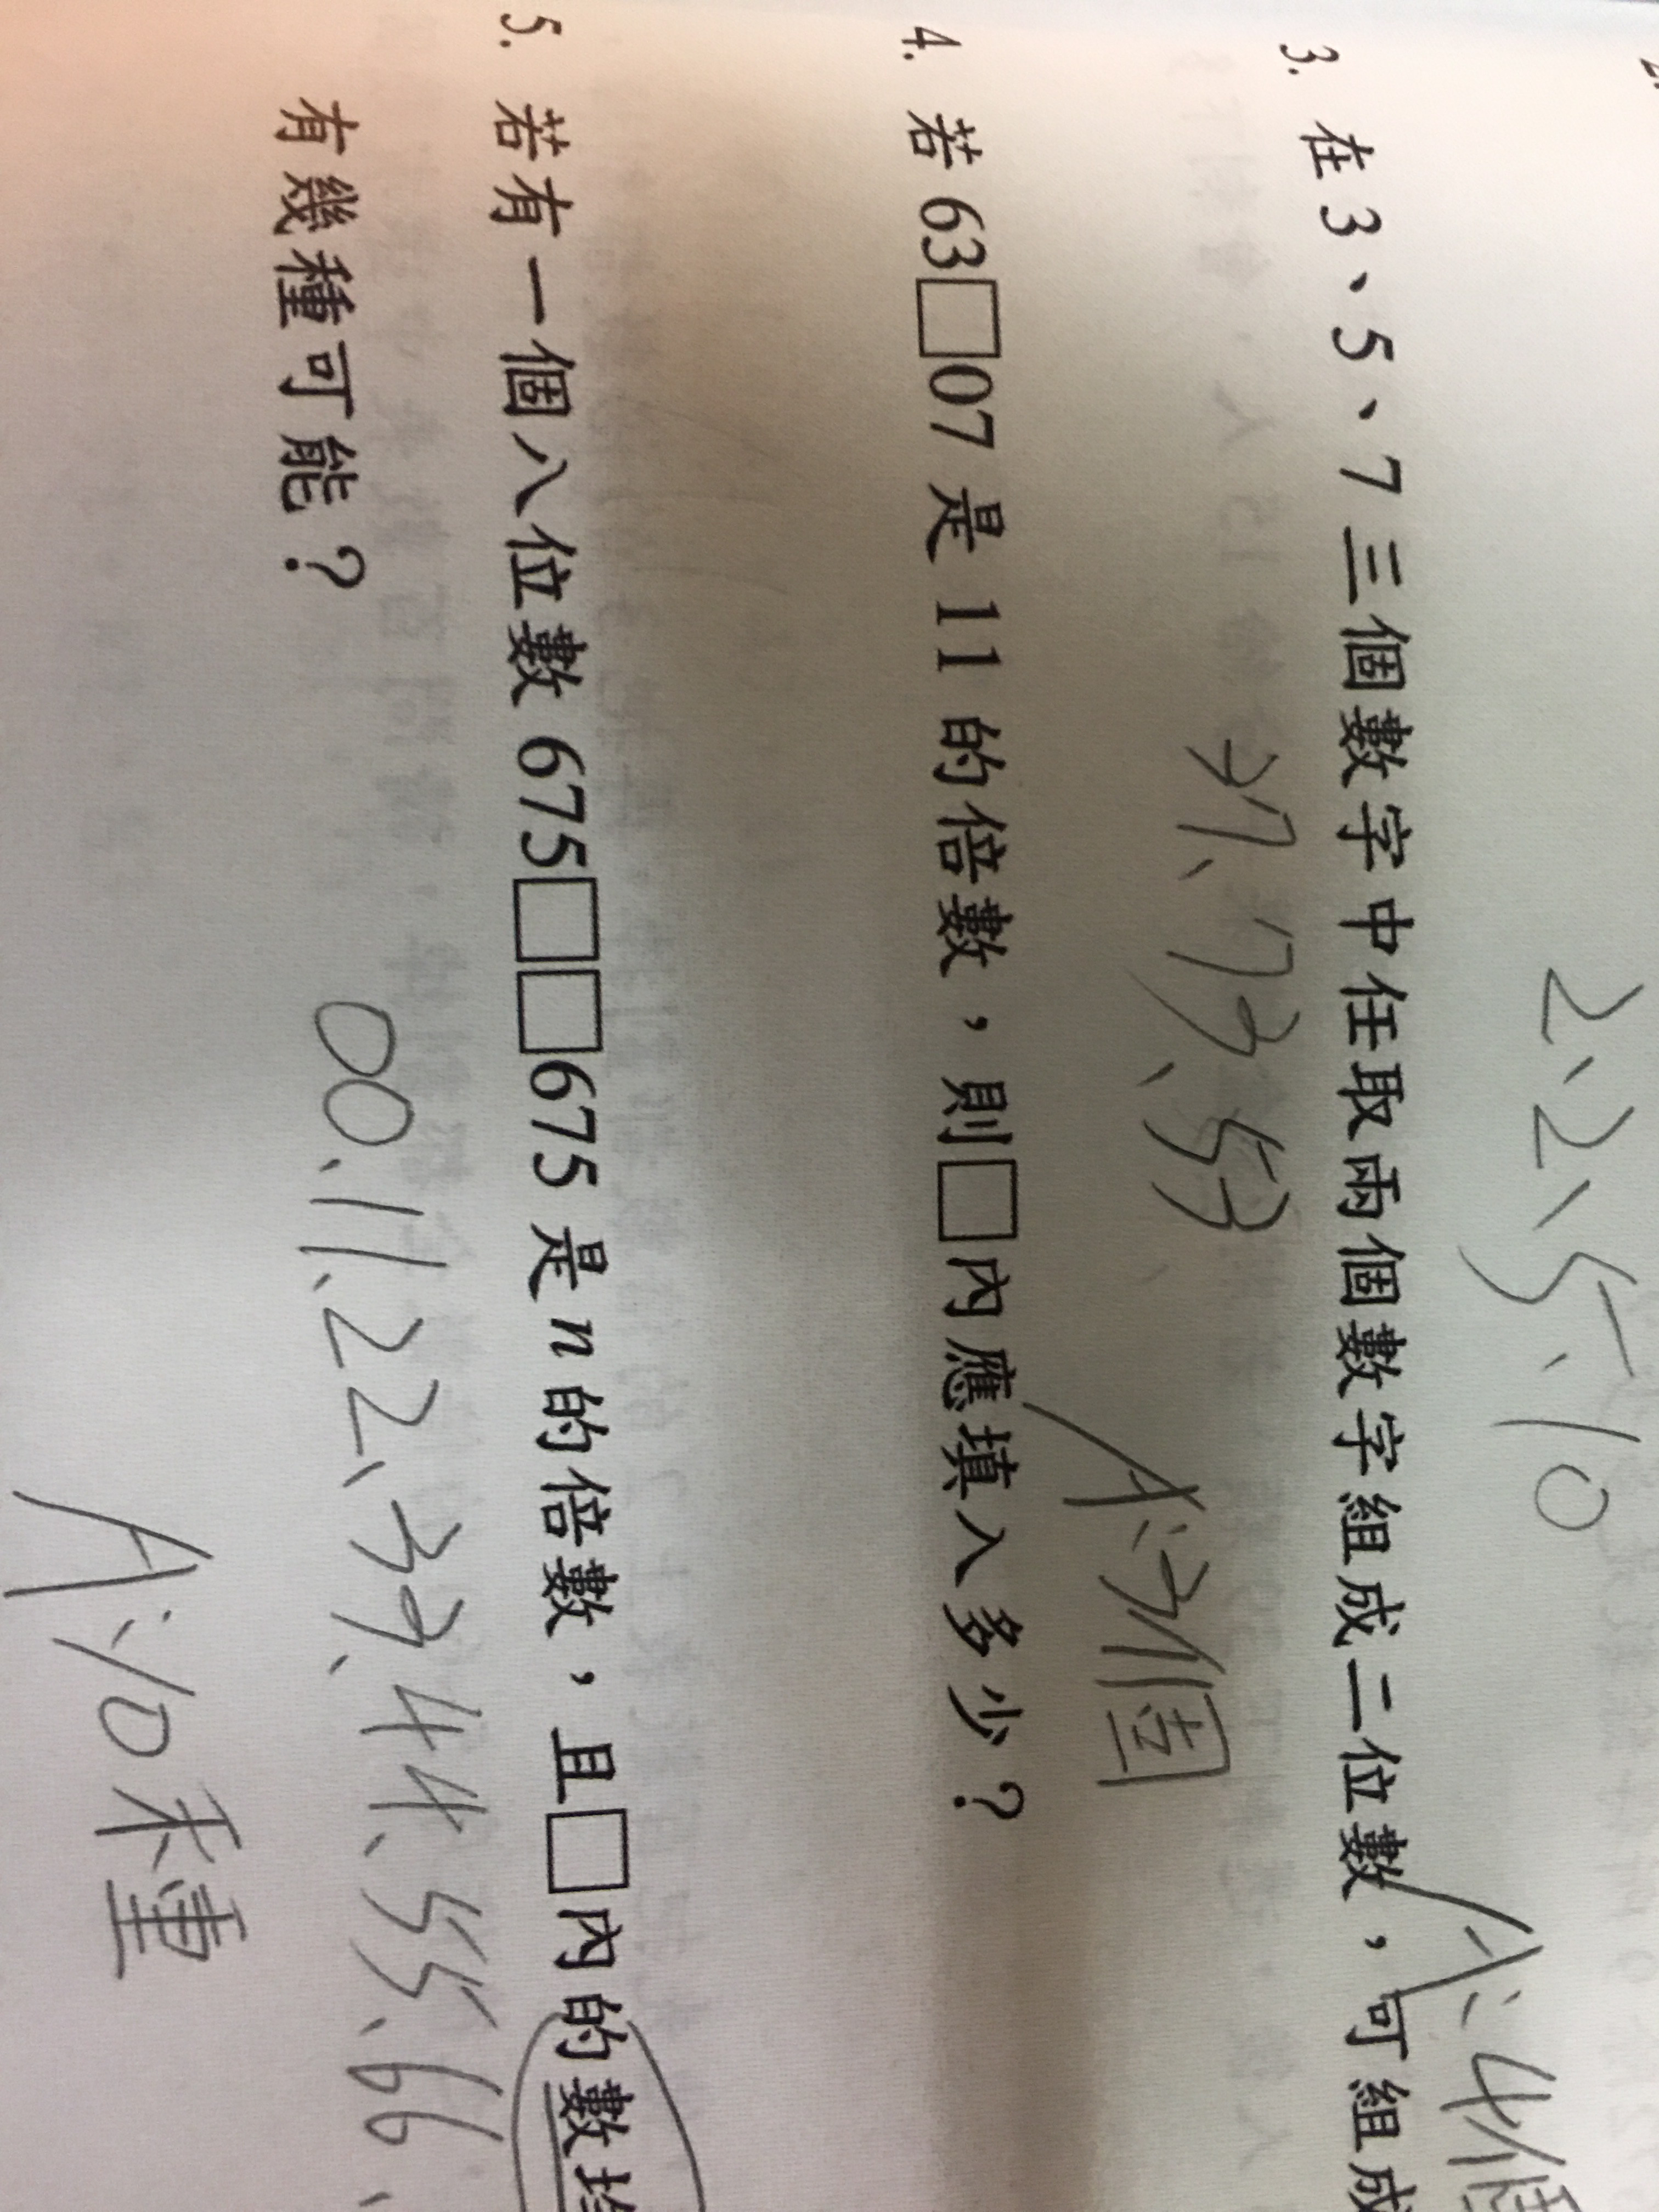 2、2、5、10
A:4個
3. 在3、5、7三個數字中任取兩個數字組成二位數，可組成
37、73、53
A:3個
4. 若63□07是11的倍數，則□內應填入多少？
5. 若有一個八位數675□□675是n的倍數，且□內的數均
有幾種可能？
00、11、22、33、44、55、66、
A:10種